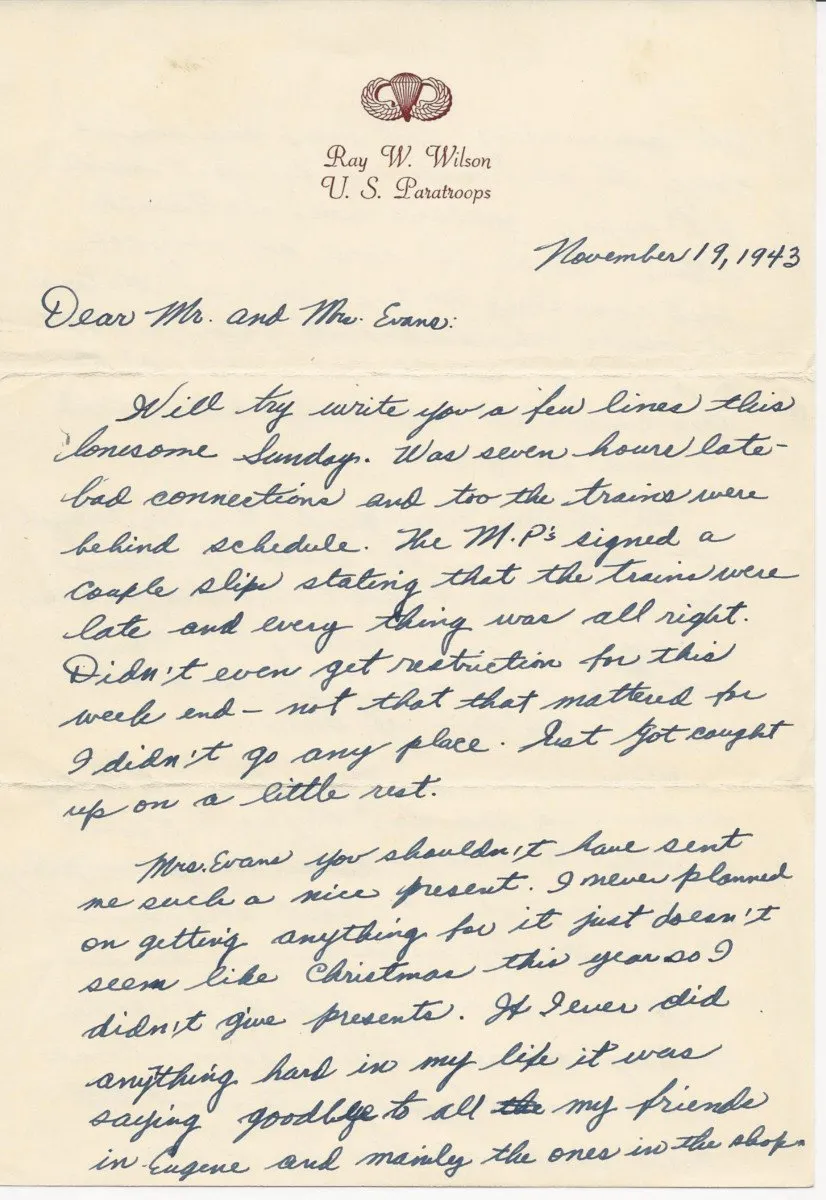 Ray W. Wilson
U. S. Paratroops
November 19, 1943
Dear Mr. and Mrs. Evans:
Will try write you a few lines this
lonesome Sunday. Was seven hours late-
bad connections and too the trains were
behind schedule. The M.P's signed a
couple slips stating that the trains were
late and every thing was all right.
Didn't even get restriction for this
week end - not that that mattered for
I didn't go any place. Just got caught
up on a little rest.
Mrs. Evans you shouldn't have sent
me such a nice present. I never planned
on getting anything for it just doesn't
seem like Christmas this year so I
didn't give presents. If I ever did
anything hard in my life it was
saying goodbye to all the my friends
in Eugene and mainly the ones in the shop.